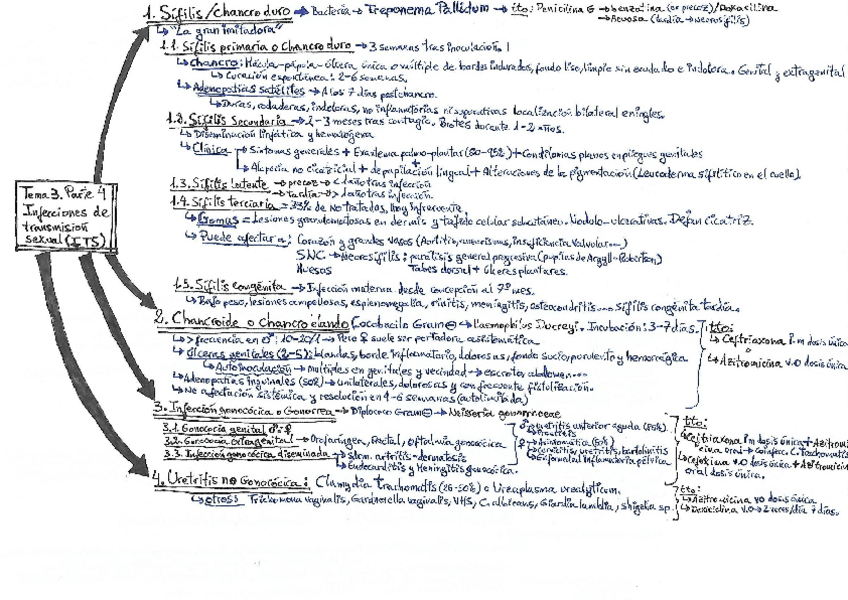 1. Sífilis/chancro duro → Bacteria → Treponema Pallidum → tto: Penicilina G → benzatina (or precoz)/Doxacilina
→ Acuosa (tardía → Neurosífilis)
↳ "La gran imitadora"
1.1. Sífilis primaria o Chancro duro → 3 semanas tras inoculación.
↳ Chancro: Mácula-pápula-úlcera única o múltiple de bordes indurados, fondo liso, limpio sin exudado e indolora. Genital y extragenital
↳ Curación espontánea: 2-6 semanas.
↳ Adenopatías satélites → A los 7 días postchancro.
↳ Duras, rodaderas, indoloras, no inflamatorias ni supurativas localización bilateral en ingles.
1.2. Sífilis Secundaria → 2-3 meses tras contagio. Brotes durante 1-2 años.
↳ Diseminación linfática y hematógena
↳ Clínica → Síntomas generales + Exantema palmo-plantar (80-95%) + Condilomas planos en pliegues genitales
↳ Alopecia no cicatricial + depapilación lingual + Alteraciones de la pigmentación (Leucoderma sifilítico en el cuello).
1.3. Sífilis latente → precoz → <1 año tras infección
↳ tardía → >1 año tras infección.
1.4. Sífilis terciaria → 33% de no tratados, muy infrecuente
↳ Gomas = Lesiones granulomatosas en dermis y tejido celular subcutáneo. Nódulo-ulcerativas. Dejan cicatriz.
↳ Puede afectar a: Corazón y grandes vasos (Aortitis, aneurismas, insuficiencia valvular...)
SNC → Neurosífilis: parálisis general progresiva (pupilas de Argyll-Robertson)
Huesos Tabes dorsal + úlceras plantares.
Tema 3. Parte 4
Infecciones de
transmisión
sexual (ITS)
1.5. Sífilis congénita → Infección materna desde concepción al 7º mes.
↳ Bajo peso, lesiones ampollosas, esplenomegalia, rinitis, meningitis, osteocondritis... Sífilis congénita tardía.
2. Chancroide o chancro blando Cocobacilo Gram ⊖ → Haemophilus Ducreyi. Incubación: 3-7 días.
tto:
↳ > frecuencia en ♂: 10-20/1 → Pero ♀ suele ser portadora asintomática
↳ Ceftriaxona i.m dosis única
↳ Úlceras genitales (2-5): blandas, borde inflamatorio, dolorosas, fondo sucio, purulento y hemorrágica
↳ Azitromicina v.o dosis única
↳ Autoinoculación → múltiples en genitales y vecindad → escroto, abdomen...
↳ Adenopatías inguinales (50%) → unilaterales, dolorosas y con frecuente fistulización.
↳ No afectación sistémica y resolución en 4-6 semanas (autolimitada)
3. Infección gonocócica o Gonorrea → Diplococo Gram ⊖ → Neisseria gonorroeae
3.1. Gonococia genital ♂ ♀
♂ ↳ uretritis anterior aguda
tto:
3.2. Gonococia extragenital → Orofaringea, Rectal, Oftalmía gonocócica
♀ ↳ Asintomática
↳ Ceftriaxona i.m dosis única + Azitromi
↳ Cervicitis, uretritis, bartolinitis
3.3. Infección gonocócica diseminada → Sdrm. artritis-dermatosis
↳ Enfermedad inflamatoria pélvica
↳ Endocarditis y Meningitis gonocócica.
↳ Cefixima v.o dosis única + Azitromicin
oral dosis única.
4. Uretritis no Gonocócica: Clamydia trachomatis (26-50%) o Ureaplasma urealyticum.
tto:
↳ Azitromicina vo dosis única
↳ otros: Trichomona vaginalis, Gardnerella vaginalis, VHS, C. albicans, Giardia lamblia, shigella sp.
↳ Doxiciclina v.o → 2 veces/día 7 días.